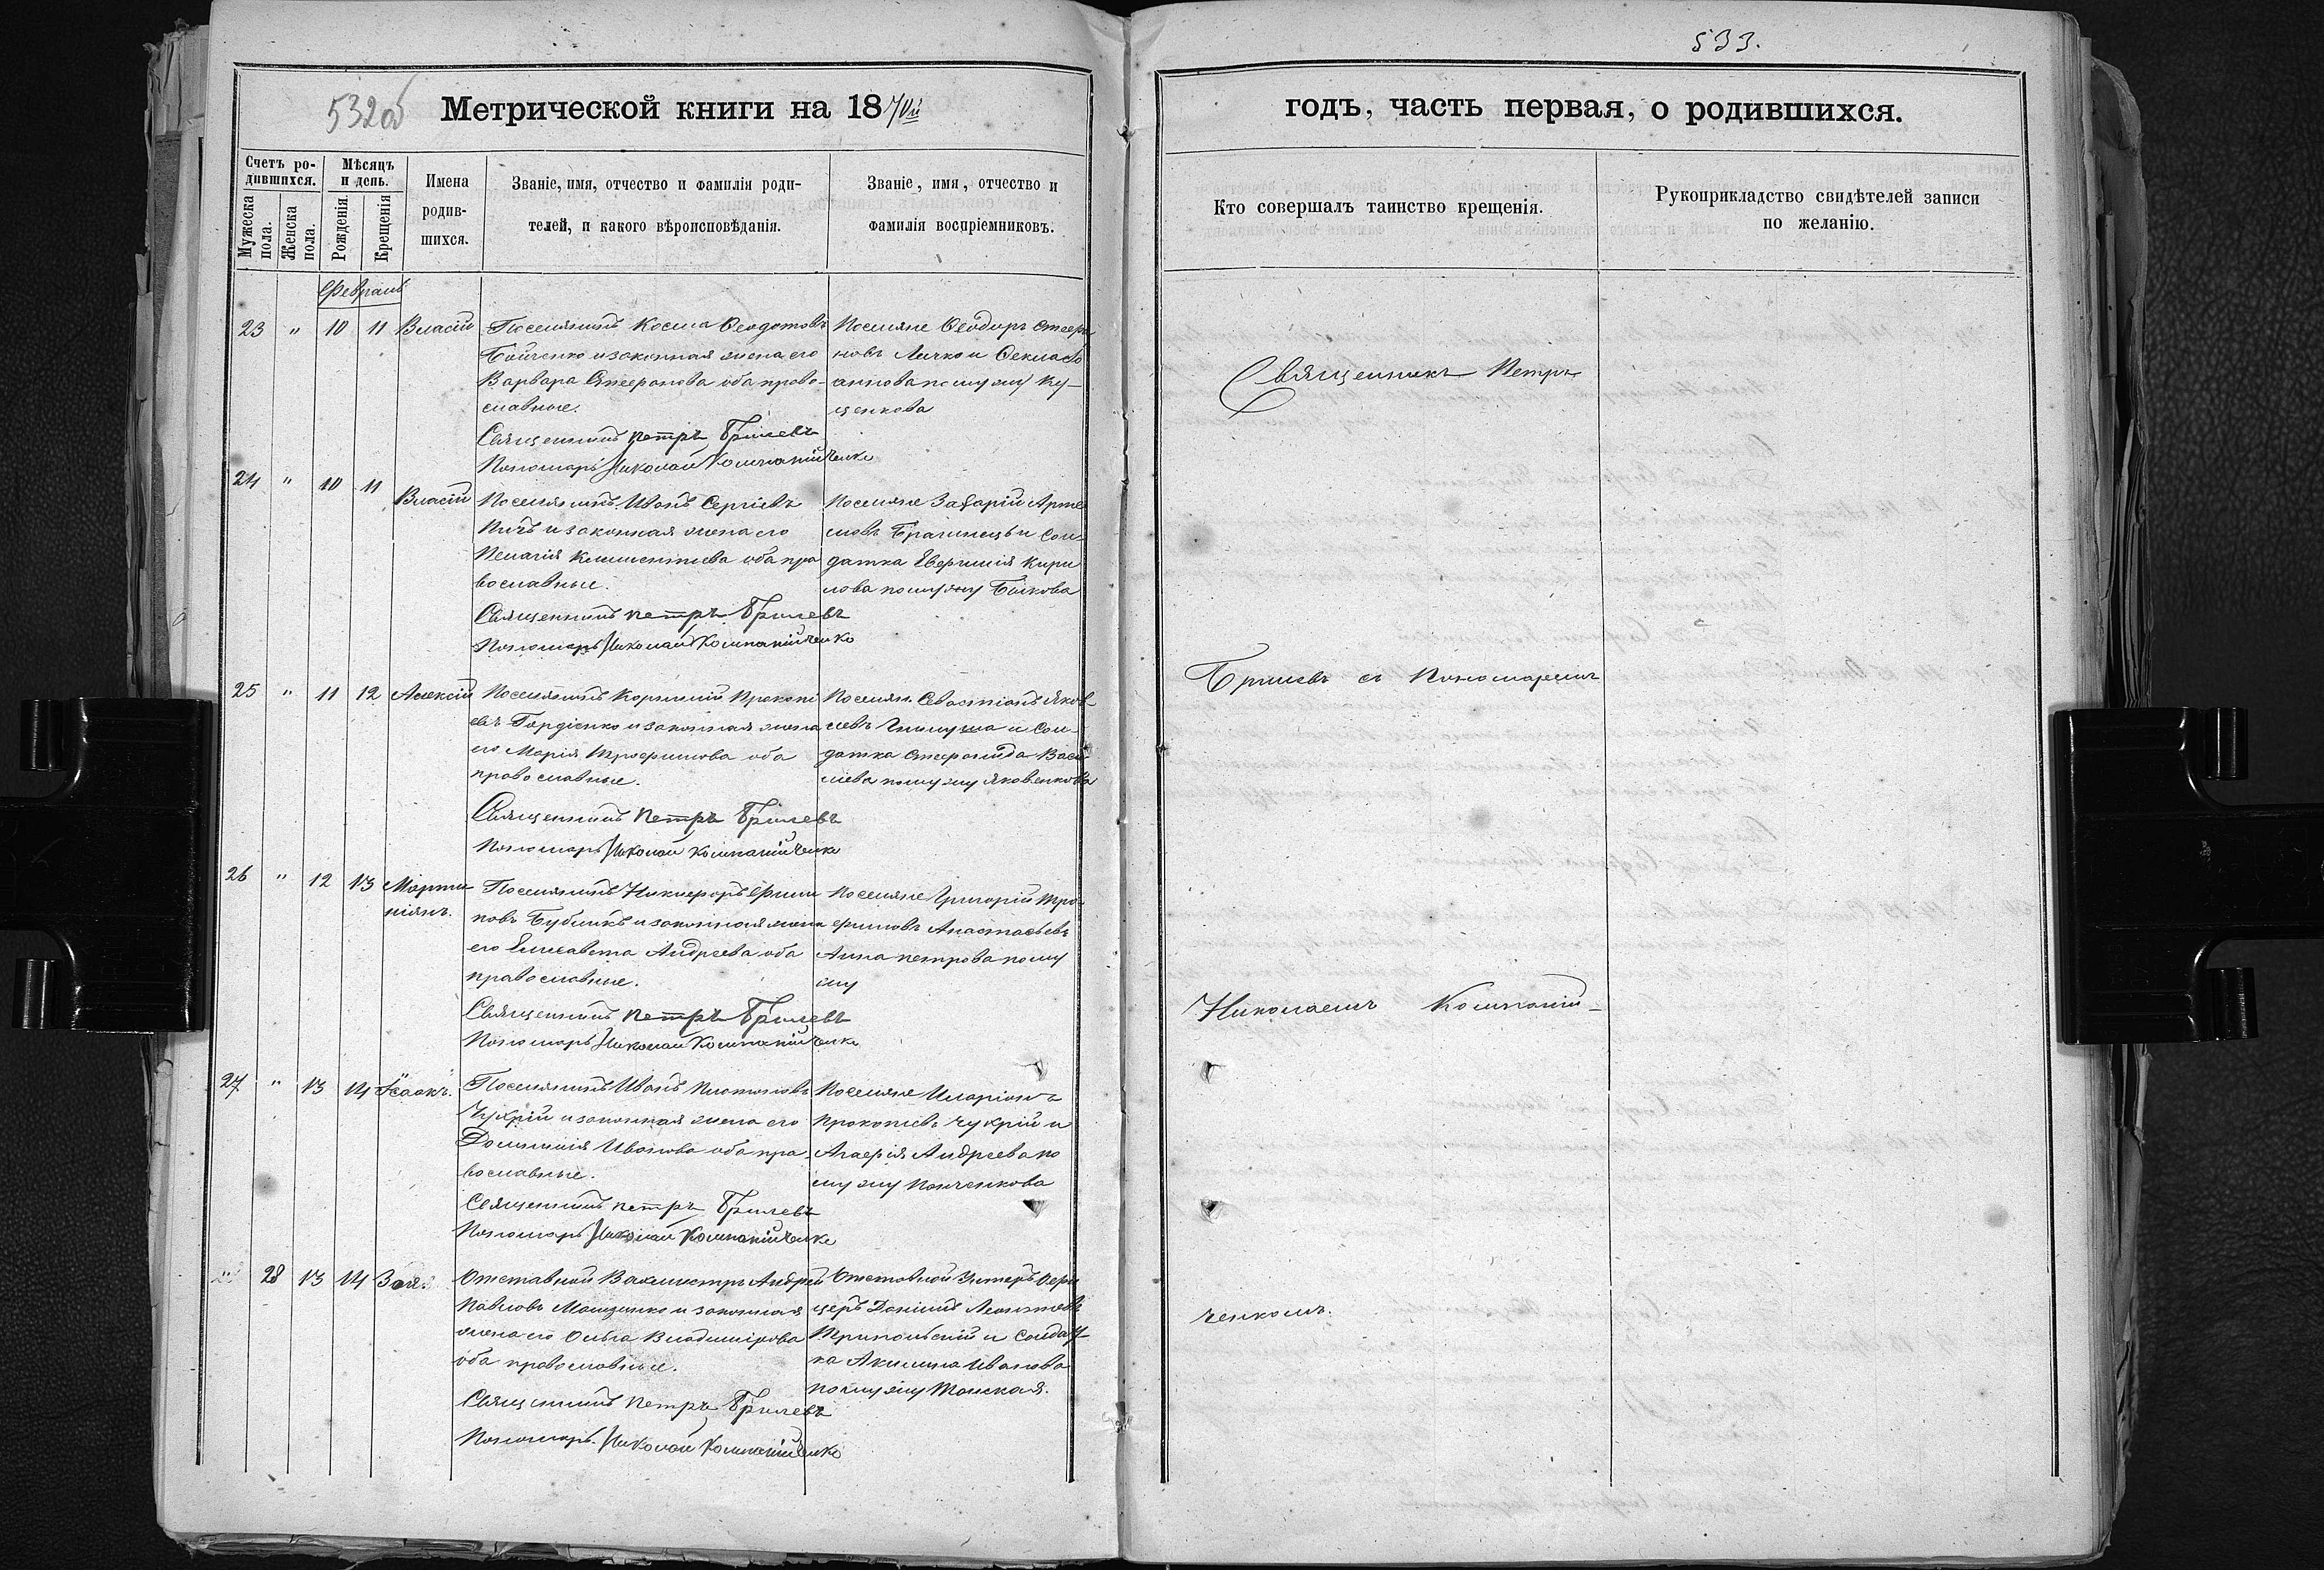 532об
Метрической книги на 1870й
Счетъ ро-
дившихся.
Мѣсяцъ
и день.
Мужеска
пола.
Женска
пола.
Рожденія.
Крещенія
Имена
родив-
шихся.
Званіе, имя, отчество и фамилія роди-
телей, и какого вѣроисповѣданія.
Званіе, имя, отчество и
фамилія воспріемниковъ.
Февраль
23 " 10 11 Власій
Поселянинъ Косма Ѳеодотовъ
Бойченко и законная жена его
Варвара Стефанова оба право-
славные.
Священникъ Петръ Брилевъ
Пономарь Николай Компанійченко
Поселяне Ѳеодоръ Стефа
новъ Личко и Ѳекла Іо
аннова по мужу Ку-
ценкова
24 " 10 11 Власій
Поселянинъ Иванъ Сергіевъ
Пичъ и законная жена его
Пелагія Климентіева оба пра
вославные.
Священникъ Петръ Брилевъ
Пономарь Николай Компанійченко
Поселяне Захарій Арте
мовъ Брагинецъ и Сол-
датка Евфимія Кири
лова по мужу Быкова
25 " 11 12 Алексій
Поселянинъ Корнилій Прокопі
евъ Гордіенко и законная жена
его Марія Трофимова оба
православные.
Священникъ Петръ Брилевъ
Пономарь Николай Компанійченко
Поселян. Севастіанъ Яков-
левъ и Сол-
датка Стефанида Васи
лиева по мужу Яковенкова
26 " 12 13 Марти
ніянъ.
Поселянинъ Никифоръ Фили
повъ Бубликъ и законная жена
его Елисавета Андреева оба
православные.
Священникъ Петръ Брилевъ
Пономарь Николай Компанійченко
Поселяне Григорій Тро-
фимовъ Анастасьевъ
Анна Петрова по му
жу
27 " 13 14 Ісаакъ.
Поселянинъ Иванъ Платоновъ
Чухрій и законная жена его
Домникія Иванова оба пра-
вославные.
Священникъ Петръ Брилевъ
Пономарь Николай Компанійченко
Поселяне Иларіонъ
Прокопіевъ Чухрій и
Агафія Андреева по
мужу Панченкова
" 28 13 14 Зоя.
Отставной Вахмистръ Андрей
Павловъ Мащенко и законная
жена его Ольга Владимірова
оба православные.
Священникъ Петръ Брилевъ
Пономарь Николай Компанійченко
Отставной Унтеръ Офи
церъ Даніилъ Леонтіевъ
Трипольскій и Солдат-
ка Акилина Иванова
по мужу Тонская.
533.
годъ, часть первая, о родившихся.
Кто совершалъ таинство крещенія.
Рукоприкладство свидѣтелей записи
по желанію.
Священникъ Петръ
Брилевъ съ Пономаремъ
Николаемъ Компаній-
ченкомъ.